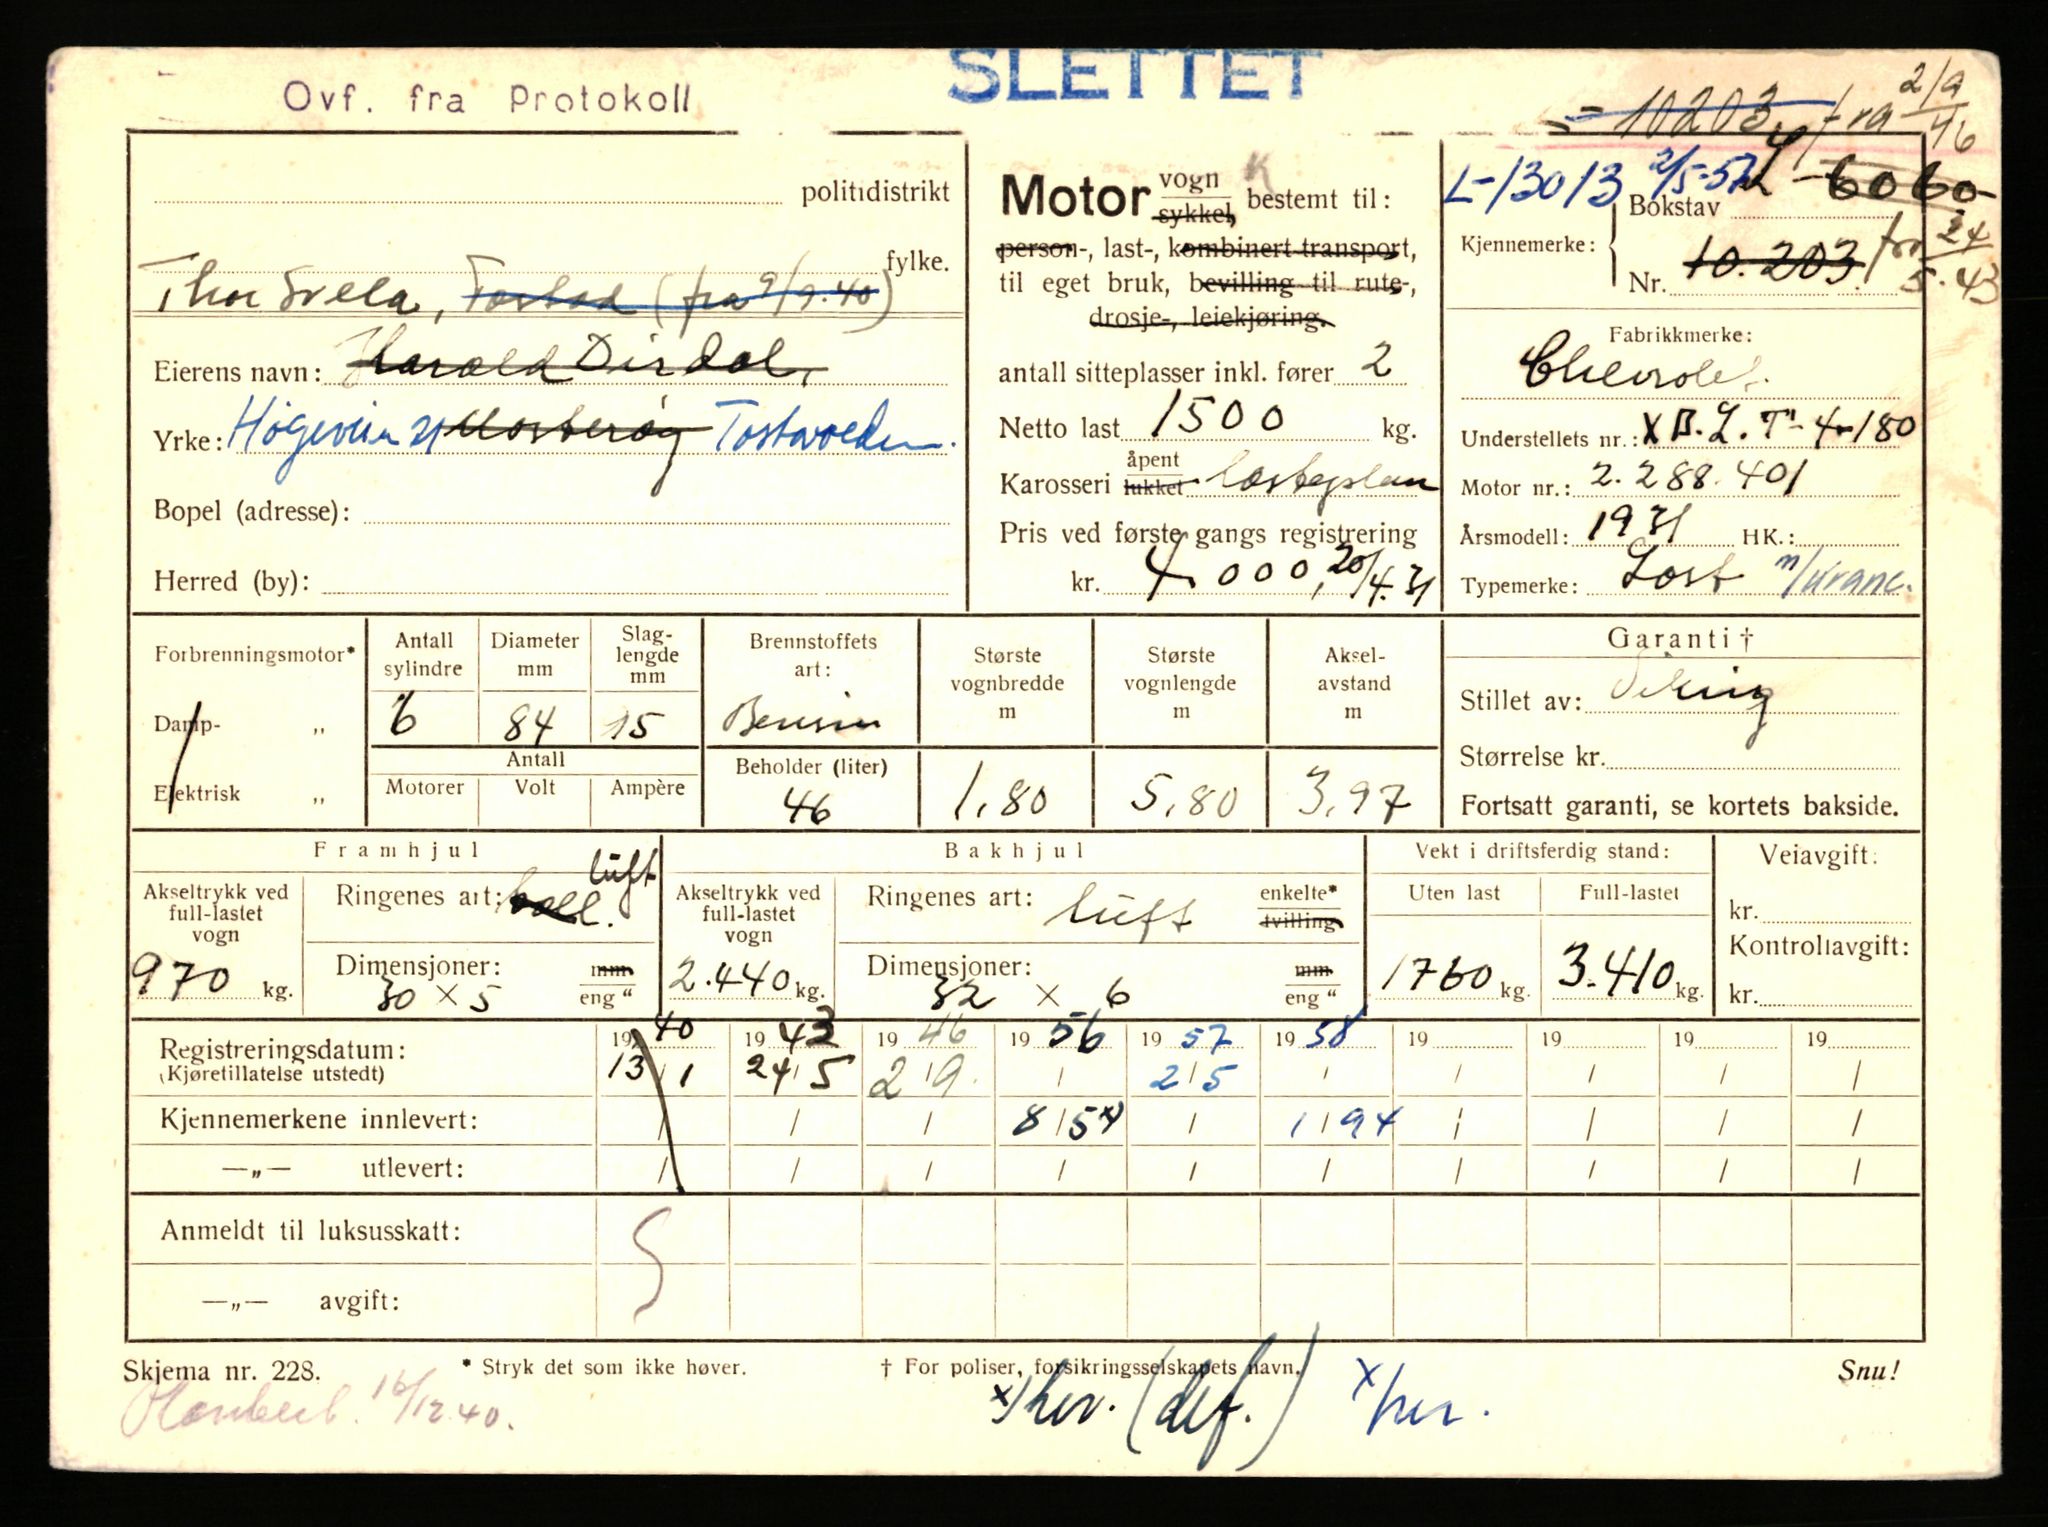 SLETTET
Ovf. fra Protokoll
10203 fra 2/9 46
politidistrikt
fylke.
Thor Svela, Tostad (fra 9/9.40)
Eierens navn: Harald Dirdal,
Yrke: Høgeveien 21 Mosterøy Tastavolden.
Bopel (adresse):
Herred (by):
Motor vogn sykkel, bestemt til: K
person-, last-, kombinert transport,
til eget bruk, bevilling til rute-,
drosje-, leiekjøring.
antall sitteplasser inkl. fører 2
Netto last 1500 kg.
Karosseri åpent lukket lasteplan
Pris ved første gangs registrering
kr. 4.000, 20/4.31
L-13013 2/5-57 L-6060-
Bokstav
Kjennemerke:
Nr. 10.203 fra 24/5.43
Fabrikkmerke:
Chevrolet.
Understellets nr.: X B.L.T-4-180
Motor nr.: 2.288.401
Årsmodell: 1931 HK.:
Typemerke: Last m/kranc.
Forbrenningsmotor*
Damp- „
Elektrisk „
Antall sylindre
6
Diameter mm
84
Slag-lengde mm
15
Antall
Motorer Volt Ampère
Brennstoffets art:
Bensin
Beholder (liter)
46
Største vognbredde m
1,80
Største vognlengde m
5,80
Aksel-avstand m
3,97
Garanti †
Stillet av: Viking
Størrelse kr.
Fortsatt garanti, se kortets bakside.
Framhjul
Akseltrykk ved full-lastet vogn
970 kg.
Ringenes art: luft
Dimensjoner: mm
30 × 5 eng "
Bakhjul
Akseltrykk ved full-lastet vogn
2.440 kg.
Ringenes art: luft enkelte* tvilling
Dimensjoner: mm
32 × 6 eng "
Vekt i driftsferdig stand:
Uten last Full-lastet
1760 kg. 3.410 kg.
Veiavgift:
kr.
Kontrollavgift:
kr.
Registreringsdatum: 1940 1943 1946 1956 1957 1958 19 19 19 19
(Kjøretillatelse utstedt) 13/1 24/5 2/9 / 2/5 / / / / /
Kjennemerkene innlevert: / / / 8/5 x) / 1/9 4x / / / /
—„— utlevert: / / / / / / / / / /
Anmeldt til luksusskatt:
—„— avgift:
Skjema nr. 228. * Stryk det som ikke høver. † For poliser, forsikringsselskapets navn. Snu!
16/12.40.
x) her. (def.) x/her.